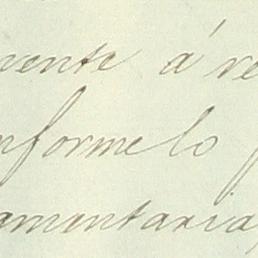 mente á re
nforme lo
amentaria